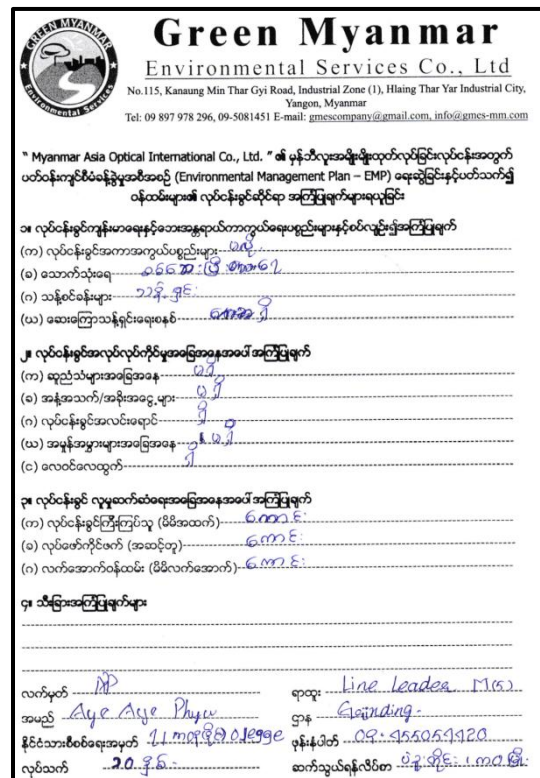 GREEN MYANMAR
Environmental Services
Green Myanmar
Environmental Services Co., Ltd
No.115, Kanaung Min Thar Gyi Road, Industrial Zone (1), Hlaing Thar Yar Industrial City,
Yangon, Myanmar
Tel: 09 897 978 296, 09-5081451 E-mail: gmescompany@gmail.com, info@gmes-mm.com
“ Myanmar Asia Optical International Co., Ltd. ” ၏ မှန်ဘီလူးအမျိုးမျိုးထုတ်လုပ်ခြင်းလုပ်ငန်းအတွက်
ပတ်ဝန်းကျင်စီမံခန့်ခွဲမှုအစီအစဉ် (Environmental Management Plan – EMP) ရေးဆွဲခြင်းနှင့်ပတ်သက်၍
ဝန်ထမ်းများ၏ လုပ်ငန်းခွင်ဆိုင်ရာ အကြံပြုချက်များရယူခြင်း
၁။ လုပ်ငန်းခွင်ကျန်းမာရေးနှင့်ဘေးအန္တရာယ်ကာကွယ်ရေးပစ္စည်းများနှင့်စပ်လျဉ်း၍အကြံပြုချက်
(က) လုပ်ငန်းခွင်အကာအကွယ်ပစ္စည်းများ မလို
(ခ) သောက်သုံးရေ
(ဂ) သန့်စင်ခန်းများ သန့်ရှင်း
(ဃ) ဆေးကြောသန့်ရှင်းရေးစနစ် ရှိ
၂။ လုပ်ငန်းခွင်အလုပ်လုပ်ကိုင်မှုအခြေအနေအပေါ် အကြံပြုချက်
(က) ဆူညံသံများအခြေအနေ မရှိ
(ခ) အနံ့အသက်/အခိုးအငွေ့များ မရှိ
(ဂ) လုပ်ငန်းခွင်အလင်းရောင် ရှိ
(ဃ) အမှုန်အမွှားများအခြေအနေ မရှိ
(င) လေဝင်လေထွက် ရှိ
၃။ လုပ်ငန်းခွင် လူမှုဆက်ဆံရေးအခြေအနေအပေါ် အကြံပြုချက်
(က) လုပ်ငန်းခွင်ကြီးကြပ်သူ (မိမိအထက်) ကောင်း
(ခ) လုပ်ဖော်ကိုင်ဖက် (အဆင့်တူ) ကောင်း
(ဂ) လက်အောက်ဝန်ထမ်း (မိမိလက်အောက်) ကောင်း
၄။ သီးခြားအကြံပြုချက်များ
လက်မှတ်
ရာထူး Line Leader M(5)
အမည် Aye Aye Phyu
ဌာန Grinding
နိုင်ငံသားစိစစ်ရေးအမှတ်
ဖုန်းနံပါတ်
လုပ်သက် 20 နှစ်
ဆက်သွယ်ရန်လိပ်စာ